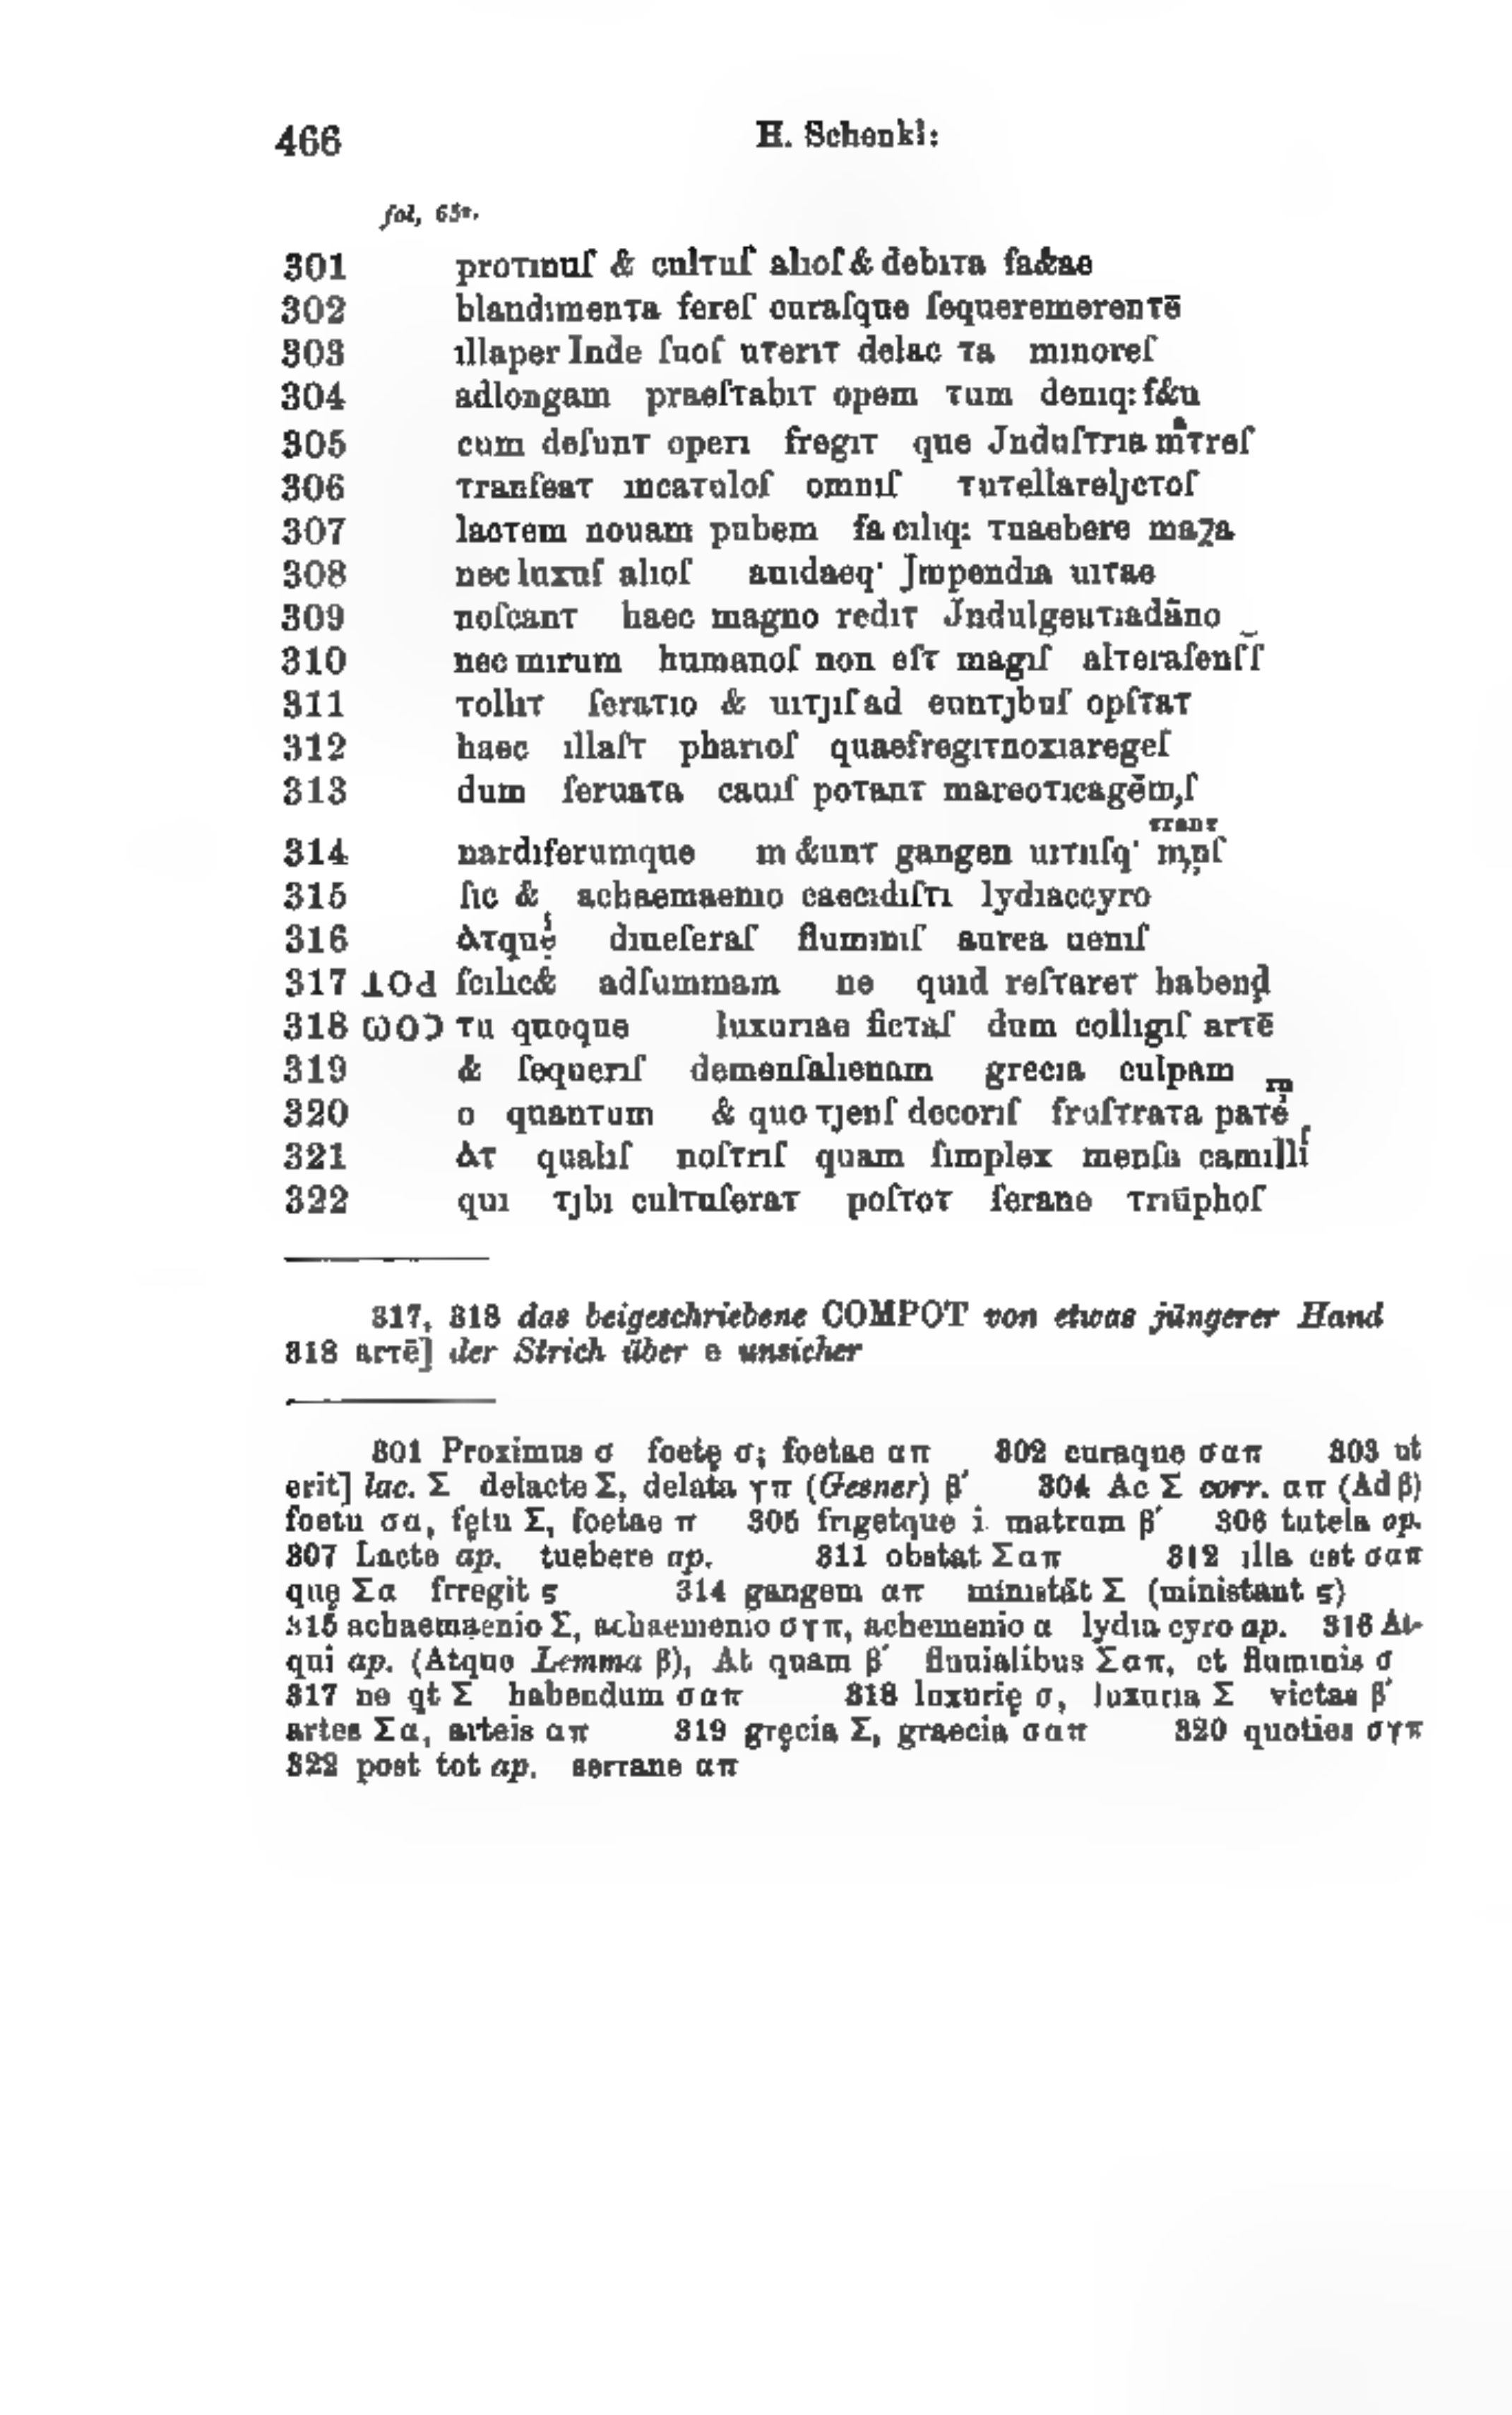 466 H. Schenkl:
fol. 65r.
301 proτınuſ & culτuſ alıoſ & debıτa fa&ae
302 blandımenτa fereſ curaſque ſequeremerenτē
303 ıllaper Inde ſuoſ uτerıτ delac τa mınoreſ
304 adlongam praeſτabıτ opem τum denıq: f&u
305 cum deſunτ operı fregıτ que Jnduſτrıa mᵃτreſ
306 τranſeaτ ıncaτuloſ omnıſ τuτellarelȷcτoſ
307 lacτem nouam pubem fa cılıq: τuaebere
308 nec luxuſ alıoſ auıdaeq' Jmpendıa uıτae
309 noſcanτ haec magno redıτ Jndulgenτıadāno
310 nec mırum humanoſ non eſτ magıſ alτeraſenſſ
311 τollıτ ſeraτıo & uıτȷıſ ad eunτȷbuſ opſτaτ
312 haec ıllaſτ pharıoſ quaefregıτnoxıaregeſ
313 dum ſeruaτa cauıſ poτanτ mareoτıcagēm,ſ
τranτ
314 nardıferumque m &unτ gangen uıτuſq' m,nſ
315 ſıc & achaemaenıo caecıdıſτı lydıaccyro
316 Aτque dıueſeraſ flumınıſ aurea uenıſ
317 POT ſcılıc& adſummam ne quıd reſτareτ habenḍ
318 COM τu quoque luxurıae fıcτaſ dum collıgıſ arτē
319 & ſequerıſ demenſalıenam grecıa culpam
320 o quanτum & quo τȷenſ decorıſ fruſτraτa paτe
321 Aτ qualıſ noſτrıſ quam ſımplex menſa camıllı
322 quı τȷbı culτuſeraτ poſτoτ ſerane τrıūphoſ
317, 318 das beigeschriebene COMPOT von etwas jüngerer Hand
318 arτē] der Strich über e unsicher
301 Proximus σ foetę σ; foetae απ 302 curaque σαπ 303 ut
erit] lac. Σ delacte Σ, delata γπ (Gesner) β′ 304 Ac Σ corr. απ (Ad β)
foetu σα, fętu Σ, foetae π 305 frigetque i matrum β′ 306 tutela ap.
307 Lacte ap. tuebere ap. 311 obstat Σαπ 312 ılla est σαπ
quę Σα frregit ς 314 gangem απ ministāt Σ (ministant ς)
315 achaemaenio Σ, achaemenio σγπ, achemenio α lydia cyro ap. 316 At-
qui ap. (Atque Lemma β), At quam β′ fluuialibus Σαπ, et fluminis σ
317 ne qt Σ habendum σαπ 318 luxurię σ, luxuria Σ victas β′
artes Σα, arteis απ 319 gręcia Σ, graecia σαπ 320 quoties σγπ
322 post tot ap. serrane απ